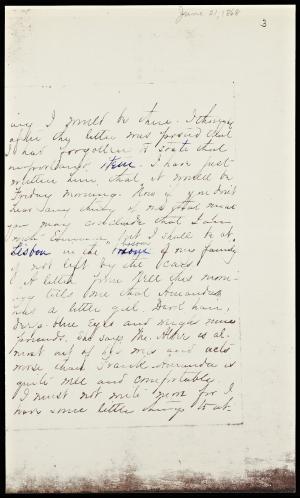 June 21, 1868
3
ing I would be there. I thought
after the letter was posted that
I had forgotten to state that
true. I have just
written him that it would be
Friday morning. Now if you don't
hear any thing of me you must
you may conclude that I am
but I shall be at
Lisbon in the of my family
if not left by the cars.
A letter from Nell this morn-
ing tells me that Amanda
has a little girl. Dark hair,
deep blue eyes and weighs nine
pounds. She says Mr. is al-
most out of his wits and acts
worse than Frank. Amanda is
quite well and comfortable.
I must not write more for I
have some little things to at